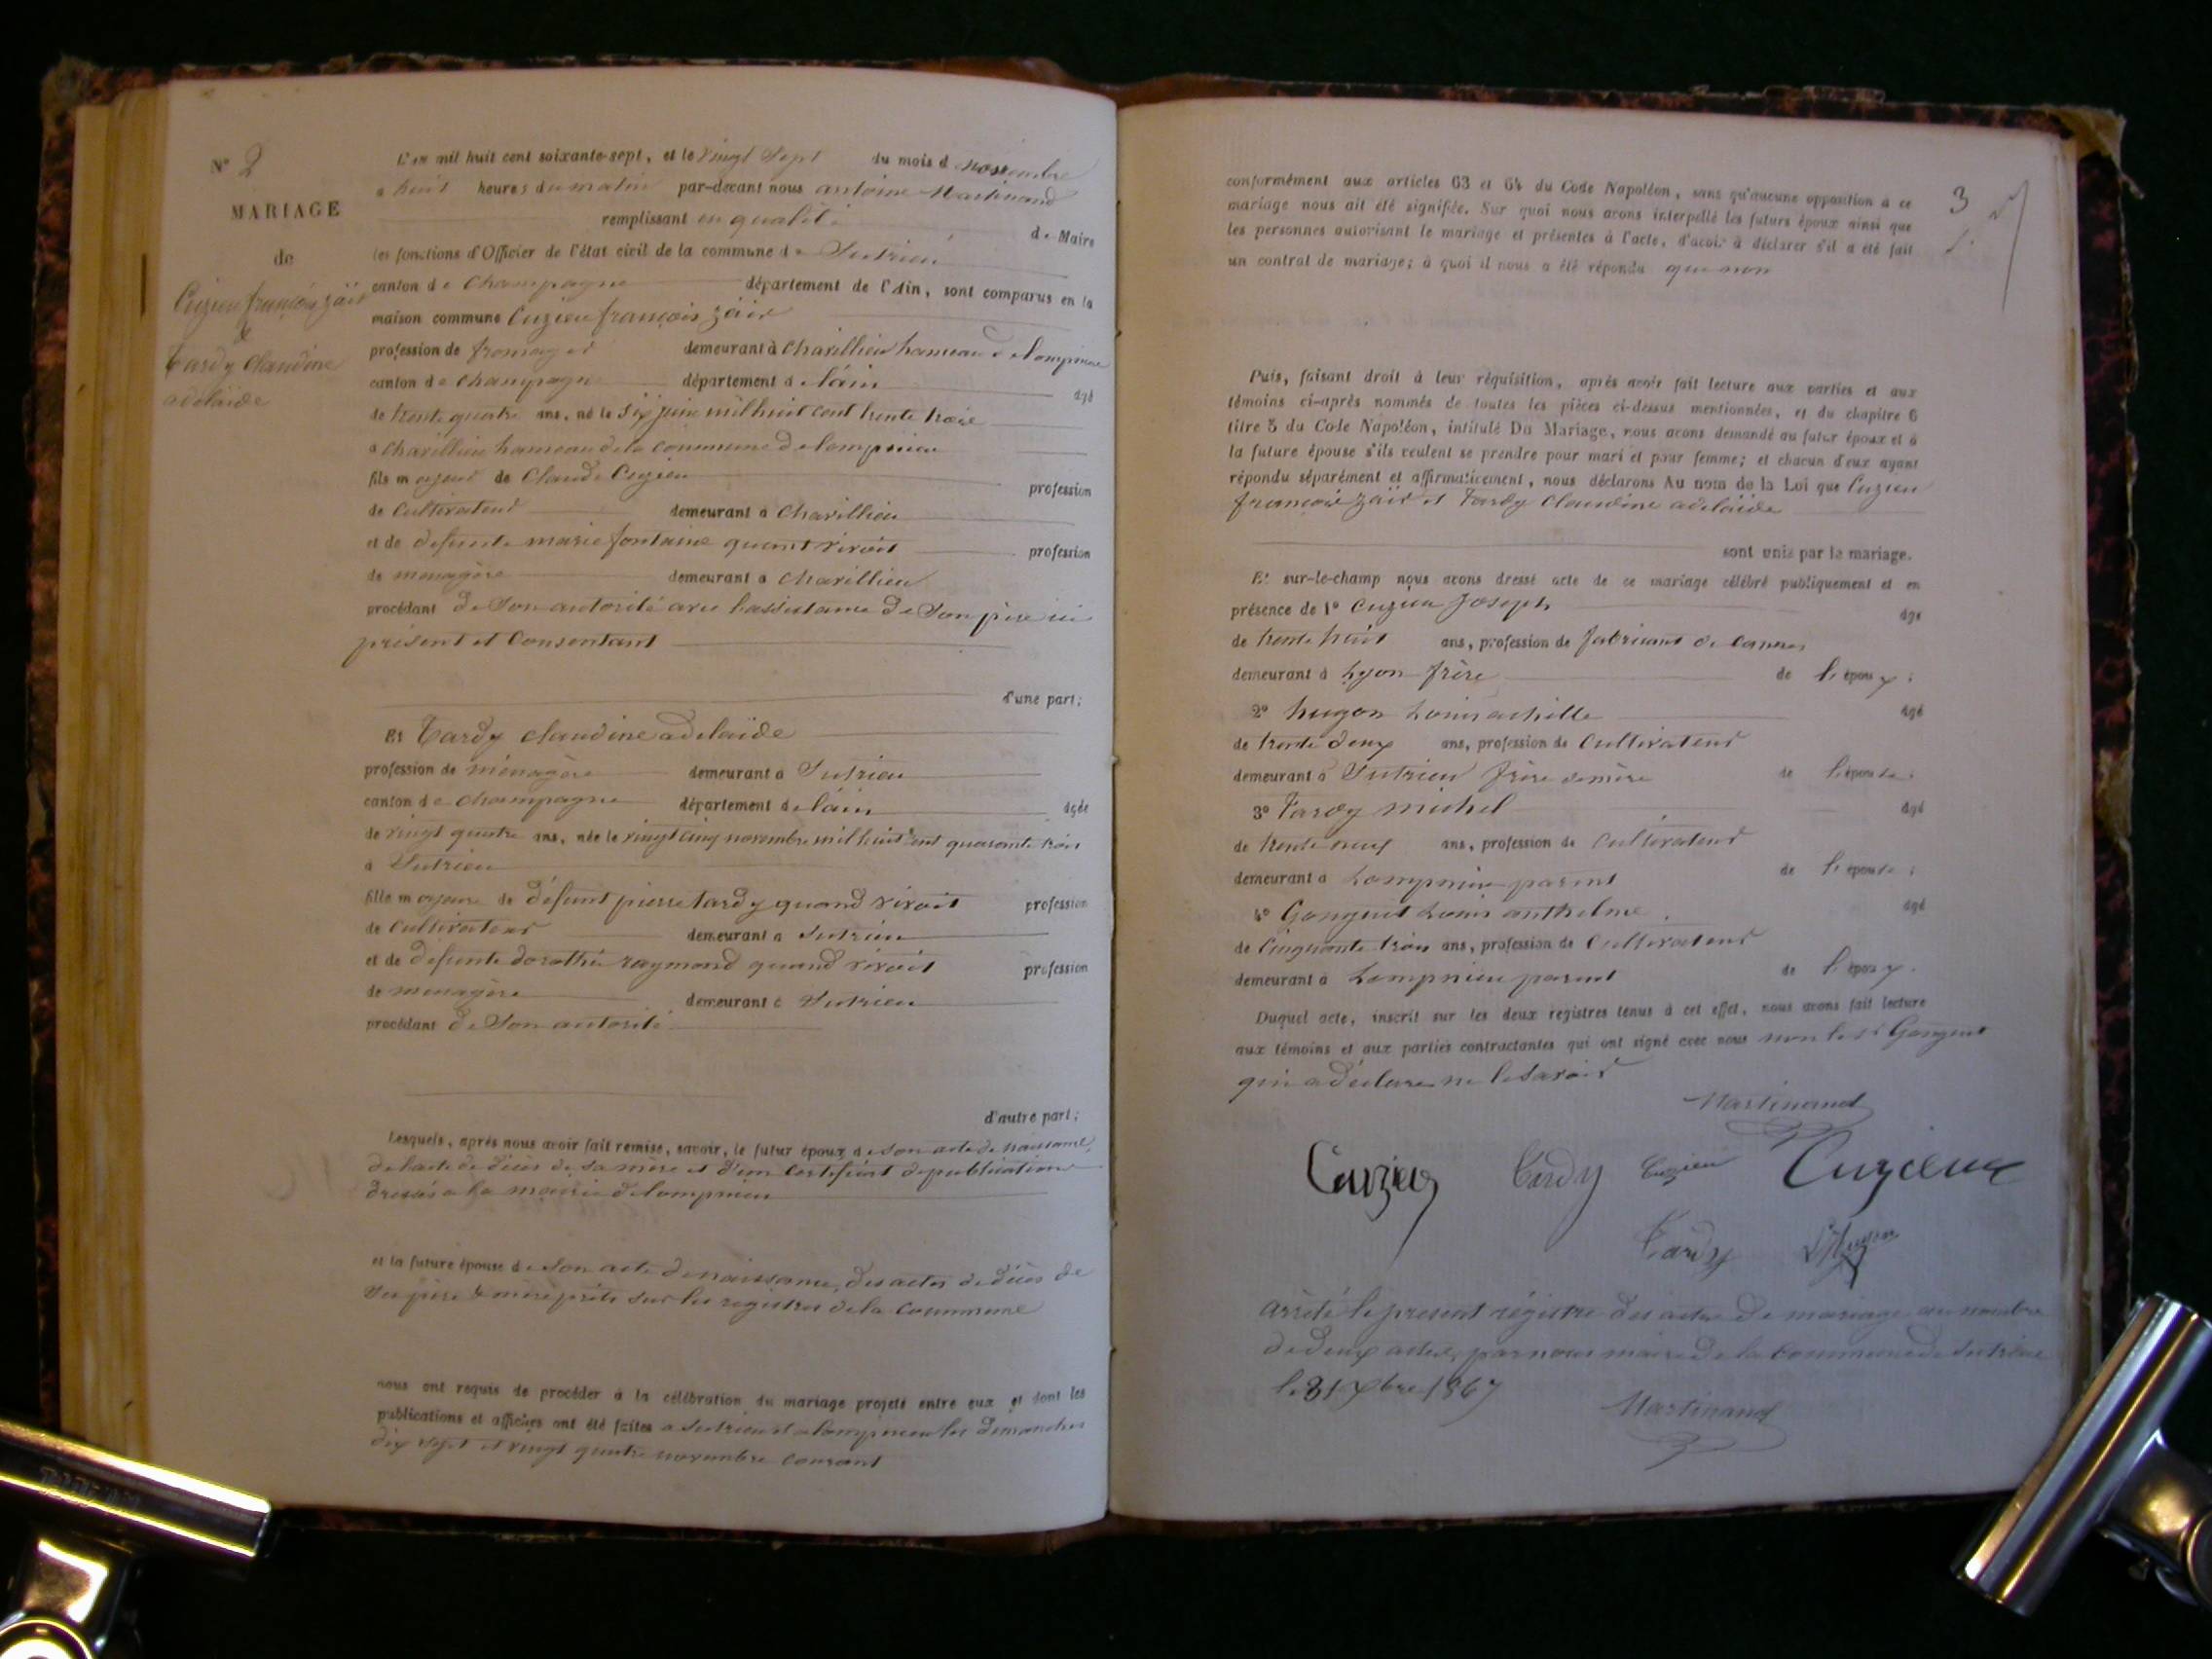 N° 2
MARIAGE
de
Cuzieu françois zäir
&
Tardy Claudine
adelaïde
L'an mil huit cent soixante-sept, et le vingt sept du mois d novembre
a huit heures du matin par-devant nous antoine Martinand
remplissant en qualité
de Maire
les fonctions d'Officier de l'état civil de la commune de Sutrieu
canton de Champagne département de l'Ain, sont comparus en la
maison commune Cuzieu françois zäir
profession de fromager demeurant à Charillieu hameau de lompnieu
canton de Champagne département de l'ain agé
de trente quatre ans, né le six juin mil huit cent trente trois
a Charillieu hameau de la commune de lompnieu
fils majeur de Claude Cuzieu profession
de Cultivateur demeurant à Charillieu
et de defunte marie fontaine quand vivait profession
de menagère demeurant à Charillieu
procédant de Son autorité avec l'assistance de Son père ici
présent et Consentant
d'une part;
Et Tardy claudine adelaïde
profession de ménagère demeurant à Sutrieu
canton de Champagne département de l'ain agée
de vingt quatre ans, née le vingt cinq novembre mil huit cent quarante trois
à Sutrieu
fille majeure de défunt pierre tardy quand vivait profession
de Cultivateur demeurant à Sutrieu
et de defunte dorothée raymond quand vivait profession
de menagère demeurant à Sutrieu
procédant de Son autorité
d'autre part;
Lesquels, après nous avoir fait remise, savoir, le futur époux de son acte de naissance,
de l'acte de décès de sa mère et d'un Certificat de publication
dressés a la mairie de lompnieu
et la future épouse de son acte de naissance, des actes de décès de
Ses père & mère portés sur les registres de la Commune
nous ont requis de procéder à la célébration du mariage projeté entre eux et dont les
publications et affiches ont été faites a Sutrieu et a lompnieu les dimanches
dix sept et vingt quatre novembre courant
3
conformément aux articles 63 et 64 du Code Napoléon, sans qu'aucune opposition à ce
mariage nous ait été signifiée. Sur quoi nous avons interpellé les futurs époux ainsi que
les personnes autorisant le mariage et présentes à l'acte, d'avoir à déclarer s'il a été fait
un contrat de mariage; à quoi il nous a été répondu que non
Puis, faisant droit à leur réquisition, après avoir fait lecture aux parties et aux
témoins ci-après nommés de toutes les pièces ci-dessus mentionnées, et du chapitre 6
titre 5 du Code Napoléon, intitulé Du Mariage, nous avons demandé au futur époux et à
la future épouse s'ils veulent se prendre pour mari et pour femme; et chacun d'eux ayant
répondu séparément et affirmativement, nous déclarons Au nom de la Loi que Cuzieu
françois zäir et Tardy Claudine adelaïde
sont unis par le mariage.
Et sur-le-champ nous avons dressé acte de ce mariage célébré publiquement et en
présence de 1° Cuzieu Joseph agé
de trente huit ans, profession de fabricant de cannes
demeurant à Lyon frère de l'époux;
2° hugon Louis achille agé
de trente deux ans, profession de Cultivateur
demeurant à Sutrieu frère de mère de l'épouse;
3° Tardy michel agé
de trente neuf ans, profession de Cultivateur
demeurant à Lompnieu parent de l'épouse;
4° Gonguet Louis anthelme agé
de Cinquante trois ans, profession de Cultivateur
demeurant à Lompnieu parent de l'époux.
Duquel acte, inscrit sur les deux registres tenus à cet effet, nous avons fait lecture
aux témoins et aux parties contractantes qui ont signé avec nous non le sr Gonguet
qui a déclaré ne le savoir
Martinand
Cuzieu Tardy Cuzieu Cuzieux
Tardy
arrêté le present régistre des actes de mariage au nombre
de deux actes, par nous maire de la Commune de Sutrieu
le 31 Xbre 1867
Martinand